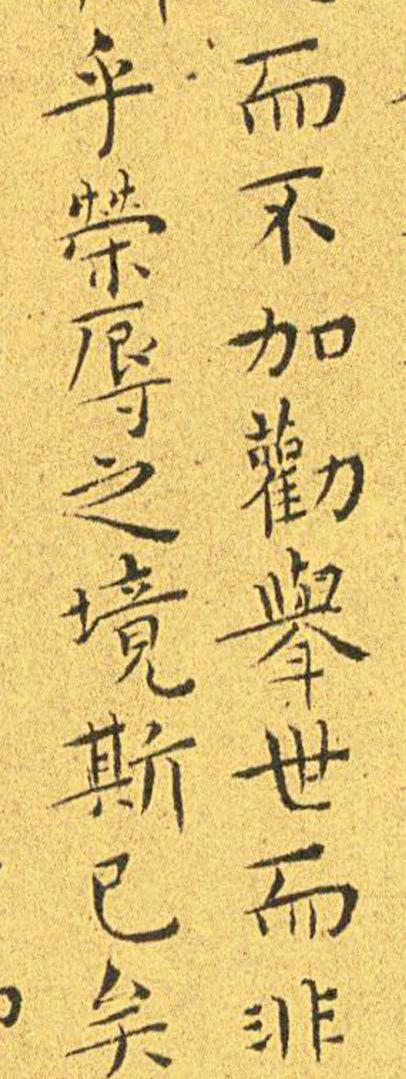 而不加勸舉世而非
乎榮辱之境斯已矣